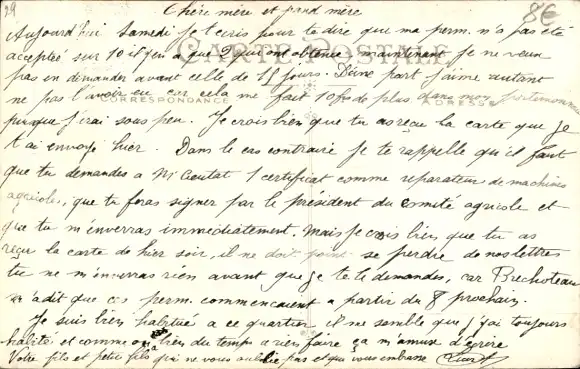 29
8€
Chère mère et grand mère
Aujourd'hui Samedi je t'écris pour te dire que ma perm. n'a pas été
acceptée sur 10 il y en a que 2 qui ont obtenue maintenant je ne veux
CARTE POSTALE
pas en demander avant celle de 15 jours. D'une part j'aime autant
ne pas l'avoir eu car cela me fait 10 frs de plus dans mon
CORRESPONDANCE
ADRESSE
puisque j'irai sous peu. Je crois bien que tu as reçu la carte que je
t'ai envoyé hier. Dans le cas contraire je te rappelle qu'il faut
que tu demandes a Mr 1 certificat comme reparateur de machines
agricoles, que tu feras signer par le président du comité agricole et
que tu m'enverras immédiatement. Mais je crois bien que tu as
reçu la carte de hier soir, il ne doit point se perdre de nos lettres
tu ne m'enverras rien avant que je te le demandes, car
m'a dit que ces perm. commencaient a partir du 8 prochain.
Je suis bien habitué a ce quartier il me semble que j'y ai toujours
habité et comme on a bien du temps a rien faire ça m'amuse d'écrire
Votre fils et petit fils qui ne vous oublie pas et qui vous embrasse